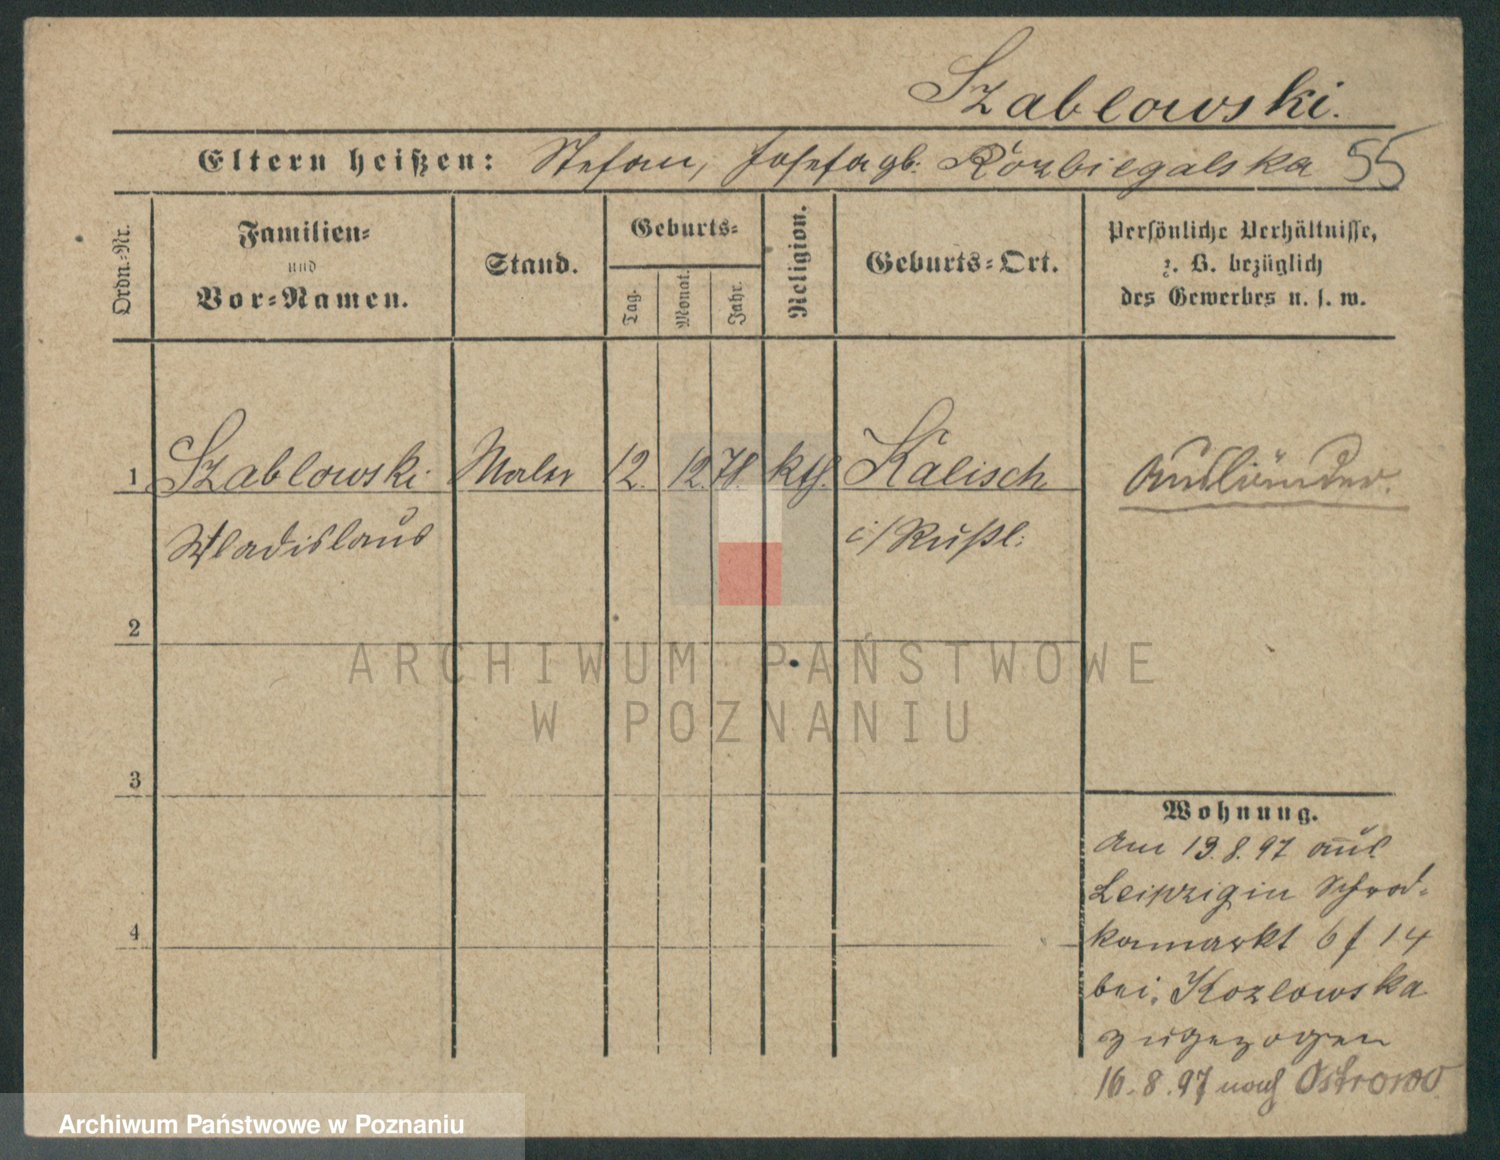 Szablowski.
Eltern heißen: Stefan, Josefa gb. Rozbiegalska 55
Ordn.-Nr.
Familien-
und
Vor-Namen.
Stand.
Geburts-
Tag.
Monat.
Jahr.
Religion.
Geburts-Ort.
Persönliche Verhältnisse,
z. B. bezüglich
des Gewerbes u. s. w.
1 Szablowski Maler 12. 12. 78. kth. Kalisch Ausländer.
Wladislaus i/Rußl:
2
3
4
Wohnung.
Am 13.8.97 aus
Leipzig in Schrod-
kamarkt 6 f 14
bei Kozlowska
zugezogen
16.8.97 nach Ostrowo
ARCHIWUM PAŃSTWOWE
W POZNANIU
Archiwum Państwowe w Poznaniu